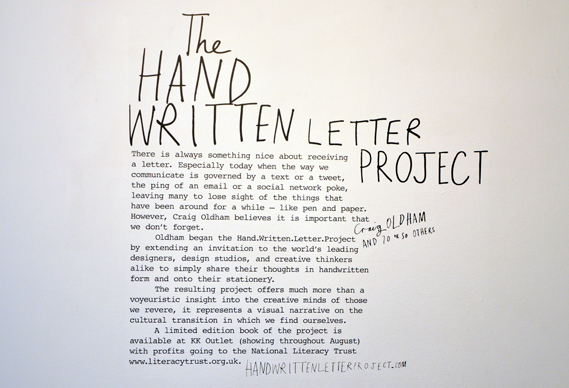 The
HAND
WRITTEN LETTER
PROJECT
There is always something nice about receiving
a letter. Especially today when the way we
communicate is governed by a text or a tweet,
the ping of an email or a social network poke,
leaving many to lose sight of the things that
have been around for a while — like pen and paper.
However, Craig Oldham believes it is important that
we don't forget.
Oldham began the Hand.Written.Letter.Project
by extending an invitation to the world's leading
designers, design studios, and creative thinkers
alike to simply share their thoughts in handwritten
form and onto their stationery.
The resulting project offers much more than a
voyeuristic insight into the creative minds of those
we revere, it represents a visual narrative on the
cultural transition in which we find ourselves.
A limited edition book of the project is
available at KK Outlet (showing throughout August)
with profits going to the National Literacy Trust
www.literacytrust.org.uk.
Craig OLDHAM
AND 70 OR SO OTHERS
HANDWRITTENLETTERPROJECT.COM